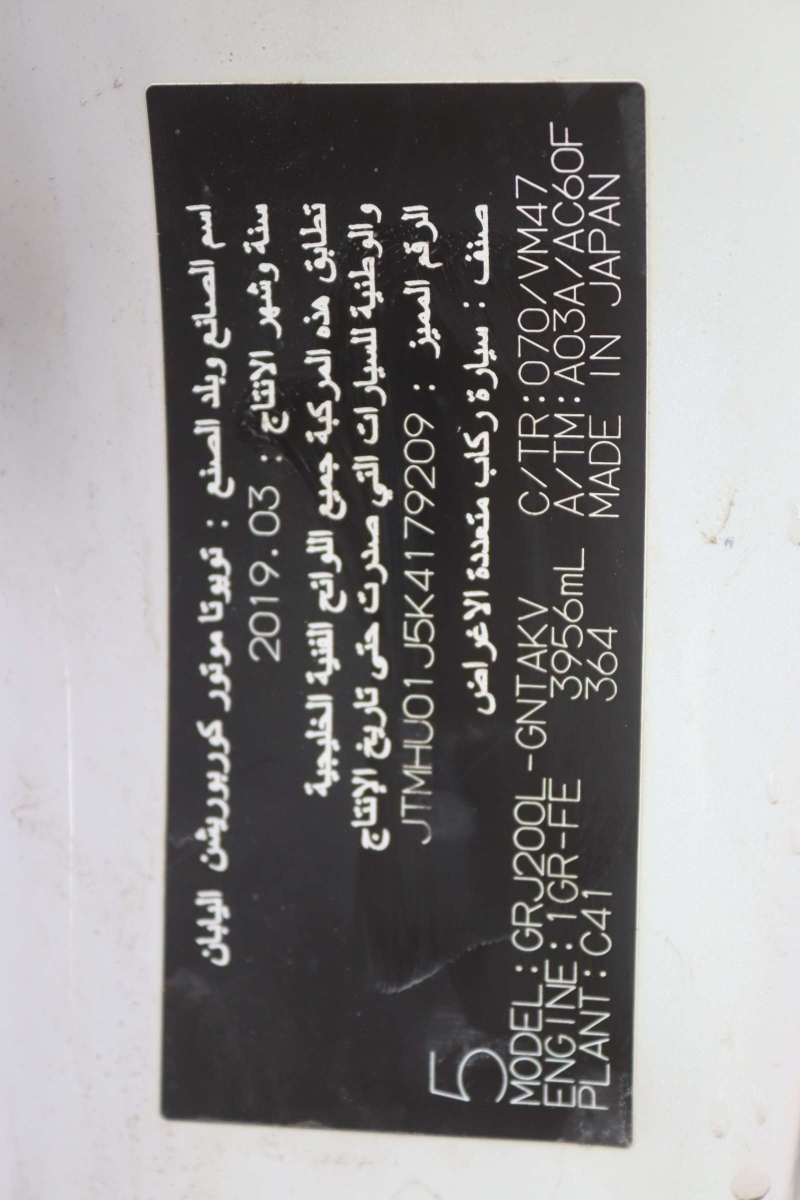 اسم الصانع وبلد الصنع : تويوتا موتور كوربوريشن اليابان
سنة وشهر الانتاج : 2019.03
تطابق هذه المركبة جميع اللوائح الفنية الخليجية
والوطنية للسيارات التي صدرت حتى تاريخ الإنتاج
الرقم المميز : JTMHU01J5K4179209
صنف : سيارة ركاب متعددة الاغراض
5
MODEL:GRJ200L-GNTAKV C/TR:070/VM47
ENGINE:1GR-FE 3956mL A/TM:A03A/AC60F
PLANT:C41 364 MADE IN JAPAN